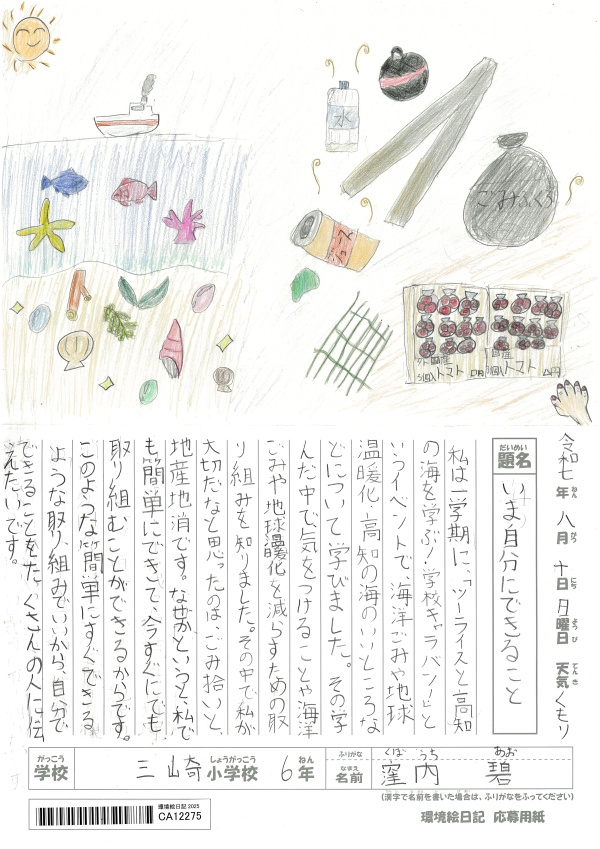 水
ごみふくろ
ジュース
国産
トマト
国産
トマト
令和七年 八月 十日 月曜日 天気 くもり
ねん がつ にち ようび てんき
だいめい
題名
いま自分にできること
私は一学期に、「ツーライスと高知
の海を学ぶ!学校キャラバン!」と
いうイベントで、海洋ごみや地球
温暖化、高知の海のいいところな
どについて学びました。その学
んだ中で気をつけることや海洋
ごみや地球温暖化を減らすための取
り組みを知りました。その中で私が
大切だなと思ったのは、ごみ拾いと、
地産地消です。なぜかというと、私で
も簡単にできて、今すぐにでも
取り組むことができるからです。
このような簡単にすぐできる
ような取り組みでいいから、自分で
できることをたくさんの人に伝
えたいです。
がっこう しょうがっこう ねん
学校 三崎 小学校 6年
ふりがな くぼ うち あお
なまえ
名前 窪内 碧
(漢字で名前を書いた場合は、ふりがなをふってください)
環境絵日記 2025
CA12275
環境絵日記 応募用紙